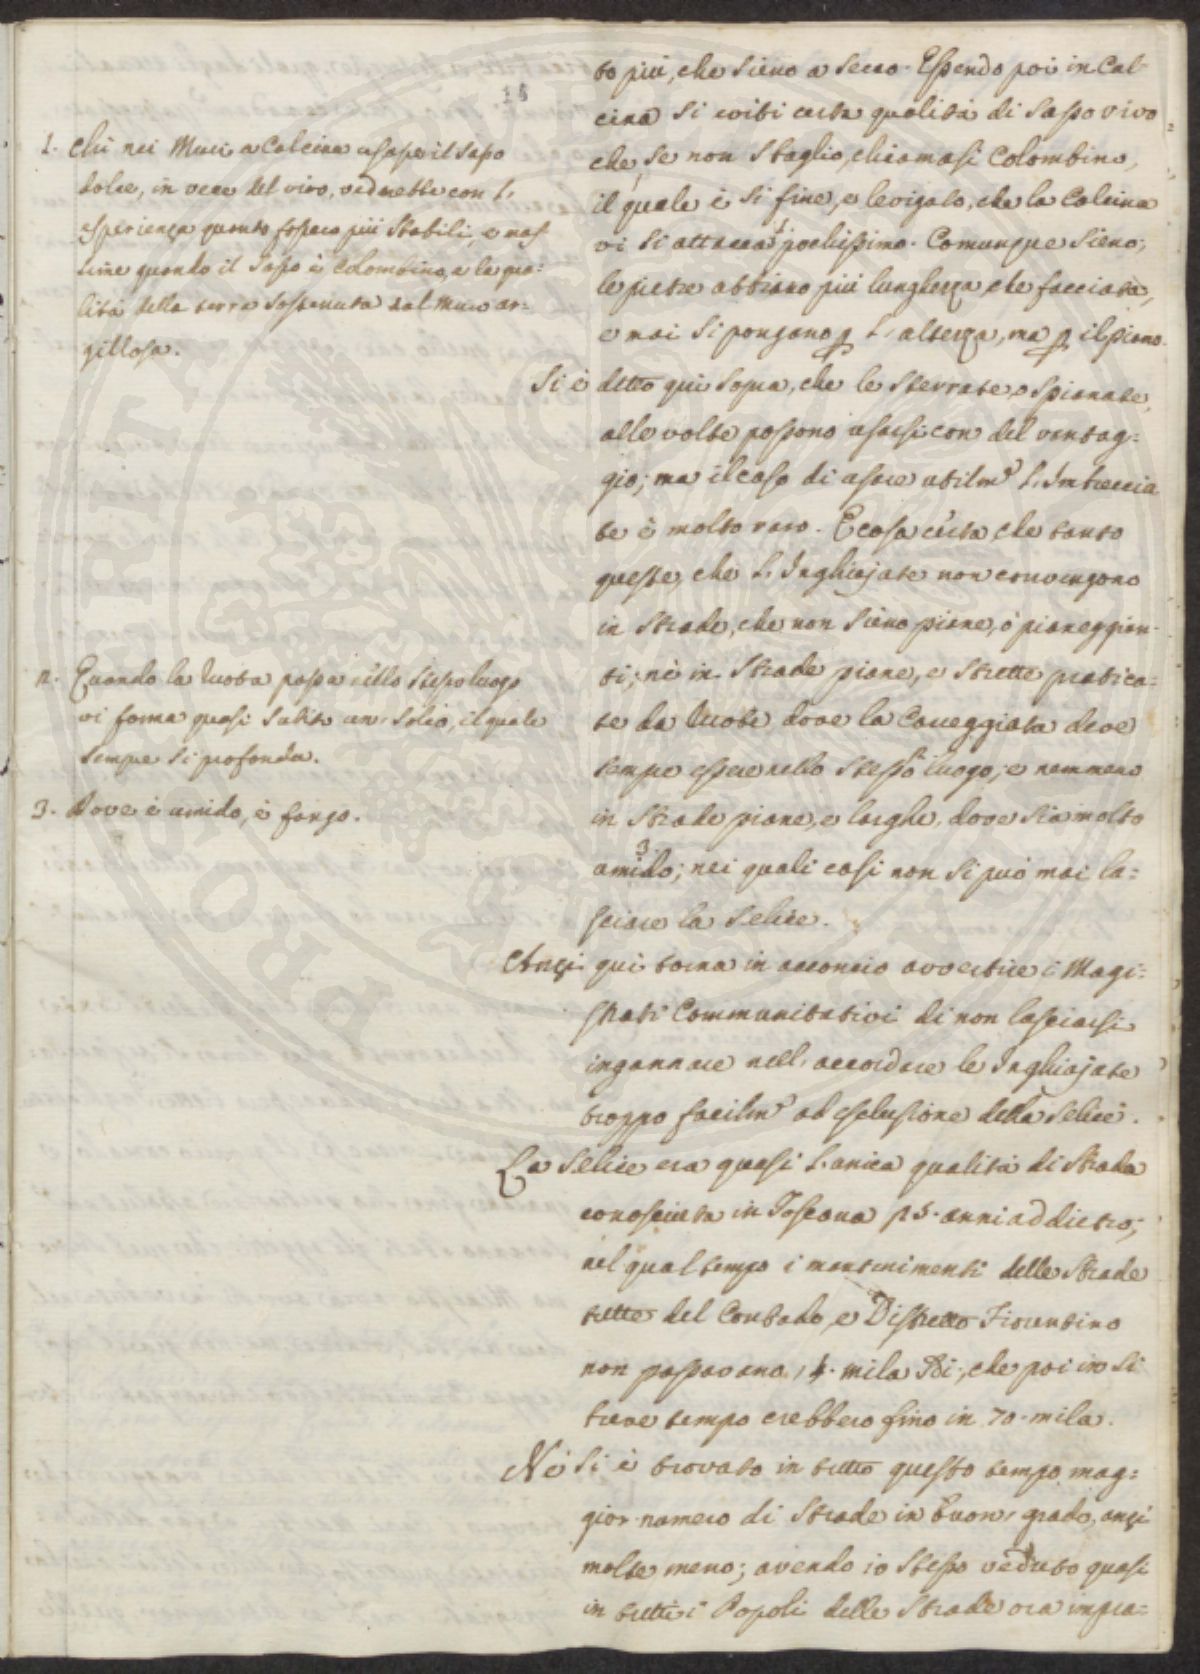 18
1. Chi nei Muri a Calcina usasse il sasso
dolce, in vece del vivo, vedrebbe con l'
esperienza quanto fossero più stabili, e mas
sime quando il sasso è Colombino, e la qua-
lità della terra sostenuta dal muro ar-
gillosa.
2. Quando la Ruota passa nello stesso luogo
vi forma quasi subito un solco, il quale
sempre si profonda.
3. Dove è umido, è fango.
to più, che sieno a secco. Essendo poi in Cal-
cina si eviti certa qualità di sasso vivo
che, se non sbaglio, chiamasi Colombino,
il quale è sì fine, e levigato, che la Calcina
vi si attacca pochissimo. Comunque sieno,
le pietre abbiano più lunghezza, che facciata,
e mai si pongano p l'altezza, ma p il piano.
Si è detto quì sopra, che le sterrate, o spianate,
alle volte possono usarsi con del vantag-
gio; ma il caso di usare utilm.e l'Intreccia
te è molto raro. È cosa certa che tanto
queste, che l'Inghiajate non convengono
in strade, che non sieno piane, ò pianeggian-
ti; nè in strade piane, e strette pratica-
te da Ruote, dove la Carreggiata deve
sempre essere nello stesso luogo; e nemmeno
in strade piane, e larghe, dove sia molto
3
umido; nei quali casi non si può mai la-
sciare la Selice.
Anzi quì torna in acconcio avvertire i Magi-
strati Communitativi di non lasciarsi
ingannare nell'accordare le Inghiajate
troppo facilm.e ad esclusione della Selice.
La Selice era quasi l'unica qualità di Strada
conosciuta in Toscana 25. anni addietro;
nel qual tempo i mantenimenti delle Strade
tutte del Contado, e Distretto Fiorentino
non passavano 14. mila di, che poi in sì
breve tempo crebbero fino in 70. mila.
Nè si è trovato in tutto questo tempo mag-
gior numero di Strade in buon grado, anzi
molte meno; avendo io stesso veduto quasi
in tutti i Popoli delle Strade ora impra-